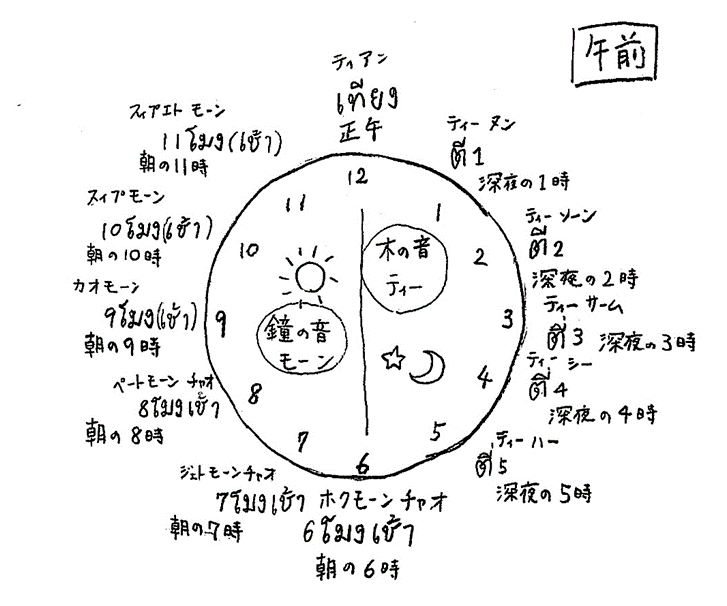 午前
ティアン
เที่ยง
正午
ティー ヌン
ตี 1
深夜の1時
ティー ソーン
ตี 2
深夜の2時
ティー サーム
ตี 3
深夜の3時
ティー シー
ตี 4
深夜の4時
ティー ハー
ตี 5
深夜の5時
ホクモーン チャオ
6โมงเช้า
朝の6時
ジェトモーンチャオ
7โมงเช้า
朝の7時
ペートモーン チャオ
8โมงเช้า
朝の8時
カオモーン
9โมง(เช้า)
朝の9時
スィプモーン
10โมง(เช้า)
朝の10時
スィプエト モーン
11โมง(เช้า)
朝の11時
12
1
2
3
4
5
6
7
8
9
10
11
木の音
ティー
鐘の音
モーン